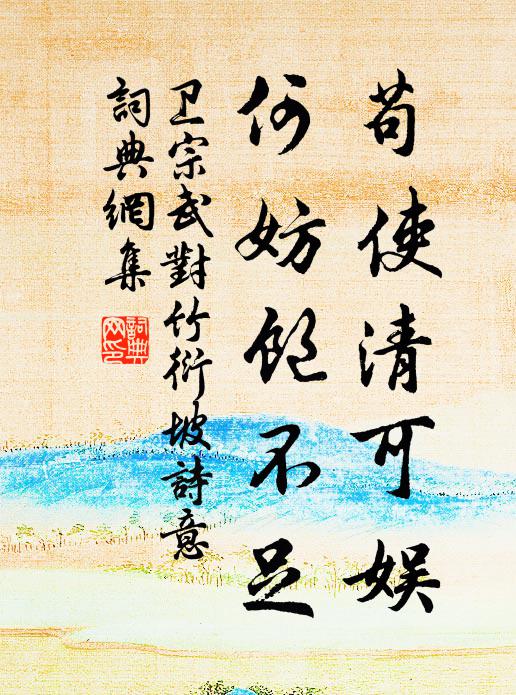 苟使清可娱
何妨饱不足
卫宗武對竹衍坡詩意
詞典網集
詞典网印